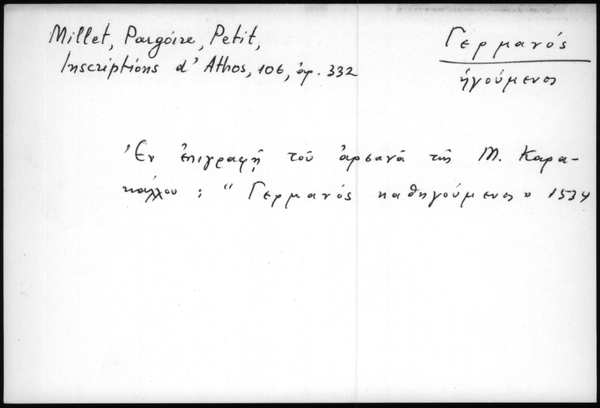 Millet, Pargoire, Petit,
Inscriptions d'Athos, 106, ἀρ. 332
Γερμανός
ἡγούμενος
Ἐν ἐπιγραφῇ τοῦ ἀρσανᾶ τῆς Μ. Καρα-
κάλλου : "Γερμανός καθηγούμενος" 1534